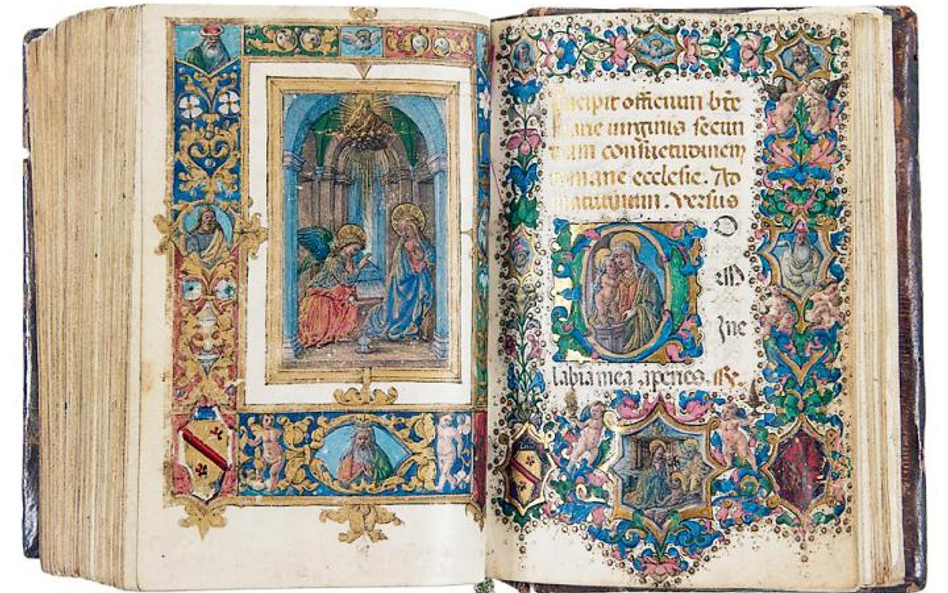 Incipit officium bte
Marie uirginis secun
dum consuetudinem
romane ecclesie. Ad
matutinum. Versus
D
ne
labia mea aperies. R.